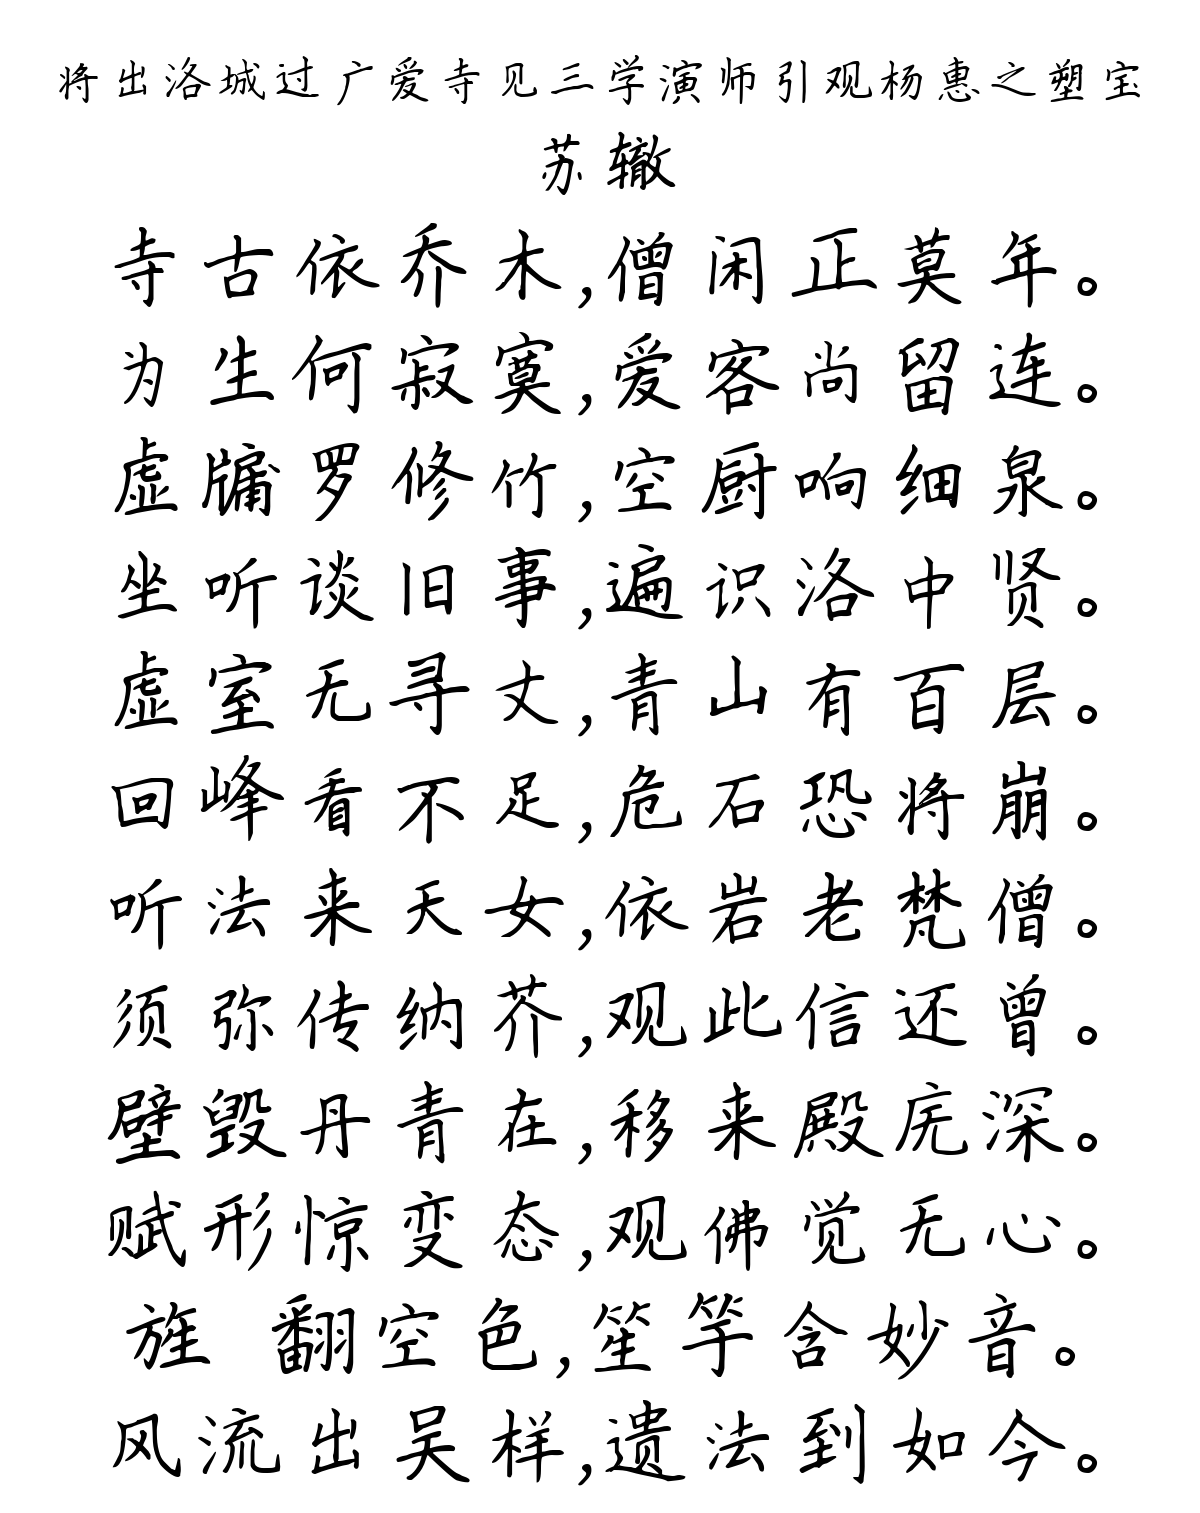 将出洛城过广爱寺见三学演师引观杨惠之塑宝
苏辙
寺古依乔木,僧闲正莫年。
为生何寂寞,爱客尚留连。
虚牖罗修竹,空厨响细泉。
坐听谈旧事,遍识洛中贤。
虚室无寻丈,青山有百层。
回峰看不足,危石恐将崩。
听法来天女,依岩老梵僧。
须弥传纳芥,观此信还曾。
壁毁丹青在,移来殿庑深。
赋形惊变态,观佛觉无心。
旌 翻空色,笙竽含妙音。
风流出吴样,遗法到如今。